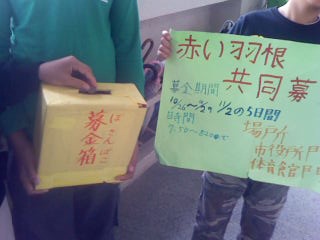 赤い羽根
共同募
募金期間
10/26〜10/29 11/2の5日間
時間
7:50〜8:20まで
場所
市役所
体育館
ぼきんばこ
募金箱